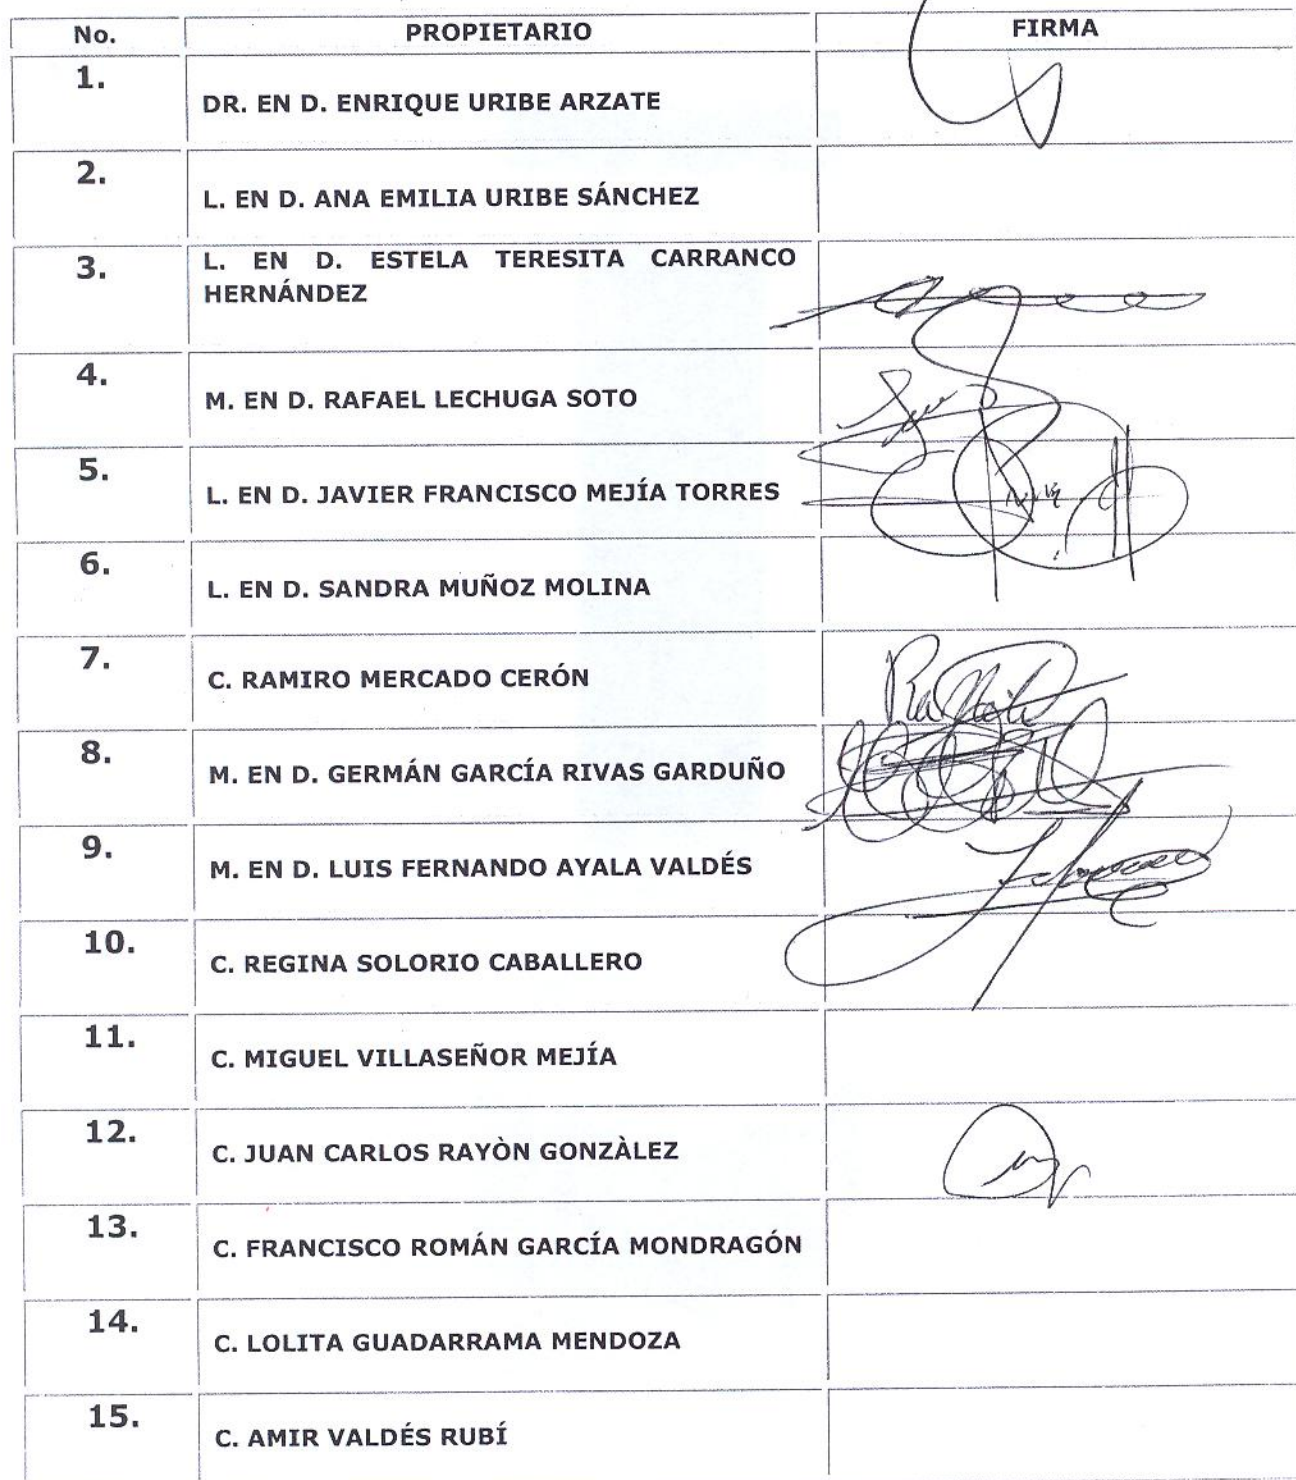 No. PROPIETARIO FIRMA
1. DR. EN D. ENRIQUE URIBE ARZATE
2. L. EN D. ANA EMILIA URIBE SÁNCHEZ
3. L. EN D. ESTELA TERESITA CARRANCO
HERNÁNDEZ
4. M. EN D. RAFAEL LECHUGA SOTO
5. L. EN D. JAVIER FRANCISCO MEJÍA TORRES
6. L. EN D. SANDRA MUÑOZ MOLINA
7. C. RAMIRO MERCADO CERÓN
8. M. EN D. GERMÁN GARCÍA RIVAS GARDUÑO
9. M. EN D. LUIS FERNANDO AYALA VALDÉS
10. C. REGINA SOLORIO CABALLERO
11. C. MIGUEL VILLASEÑOR MEJÍA
12. C. JUAN CARLOS RAYÒN GONZÀLEZ
13. C. FRANCISCO ROMÁN GARCÍA MONDRAGÓN
14. C. LOLITA GUADARRAMA MENDOZA
15. C. AMIR VALDÉS RUBÍ